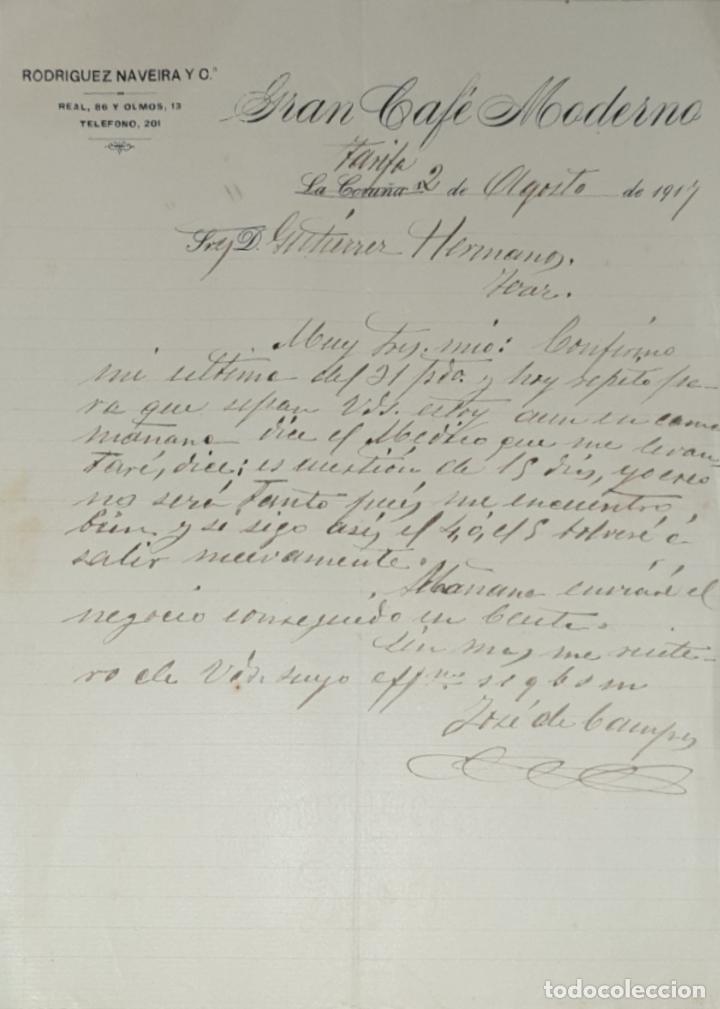 RODRIGUEZ NAVEIRA Y C.ª
REAL, 86 Y OLMOS, 13
TELEFONO, 201
Gran Café Moderno
Tarifa
La Coruña 2 de Agosto de 1917
Sres D. Gutierrez Hermanos.
Jerez.
Muy Sres. mio: Confirmo
mi ultima del 31 pdo. y hoy repito pa-
ra que sepan Vds. estoy aun en cama
mañana dice el Medico que me levan-
taré, dice; es cuestión de 15 dias, yo creo
no será tanto pues me encuentro
bien y si sigo asi, el 4, o, el 5 bolveré á
salir nuevamente.
Mañana enviaré el
negocio conseguido en Ceuta.
Sin mas, me reite-
ro de Vds. suyo affmo. s s q b s m
José de Campos
todocoleccion